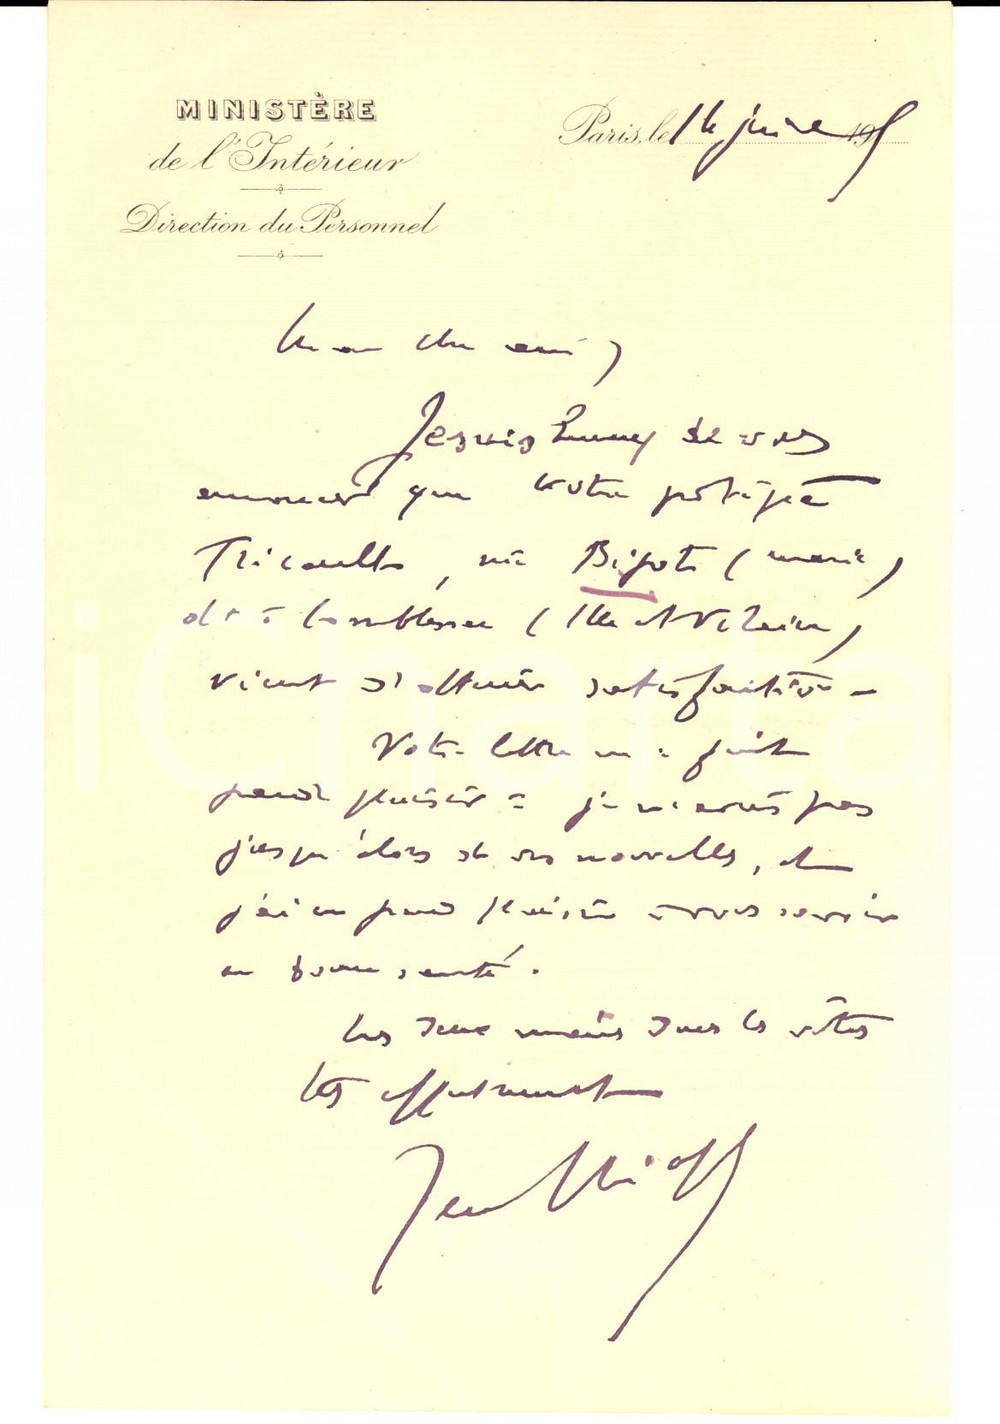 MINISTÈRE
de l'Intérieur
Direction du Personnel
Paris, le 14 juin 19
Mon cher ami,
Je suis heureux de vous
annoncer que votre protégée
Tricault, née Bigot (marie)
de Combless (Ille et Vilaine)
vient d'obtenir satisfaction -
Votre lettre m'a fait
grand plaisir : je n'avais pas
jusqu'alors de vos nouvelles, et
j'ai eu grand plaisir à vous savoir
en bonne santé.
Les deux mains dans les vôtres
très affectueusement
Jean
iCharta